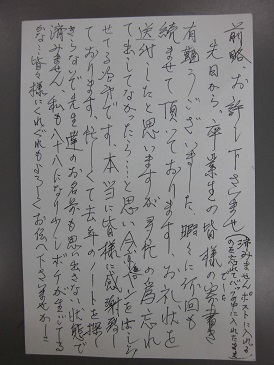 前略、お許し下さいませ
済みませんポストに入れる
のを忘れてバックの中に入れたまま
でした
先日から、卒業生の皆様の寄書き
有難うございました、暇々に何回も
読ませて頂いております、お礼状を
送付したと思いますが 多忙の為忘れ
て出してなかったら…と思い今ペンをはしら
せてる冶です、本当に皆様に感謝致し
ております、忙しくて去年のノートを探
きらなぞ先生達のお名前も思い出さない状態で
済みません、私も八十八になり少しボケが生じてる
かな…皆々様にくれぐれもよろしくお伝へ下さいませかしこ